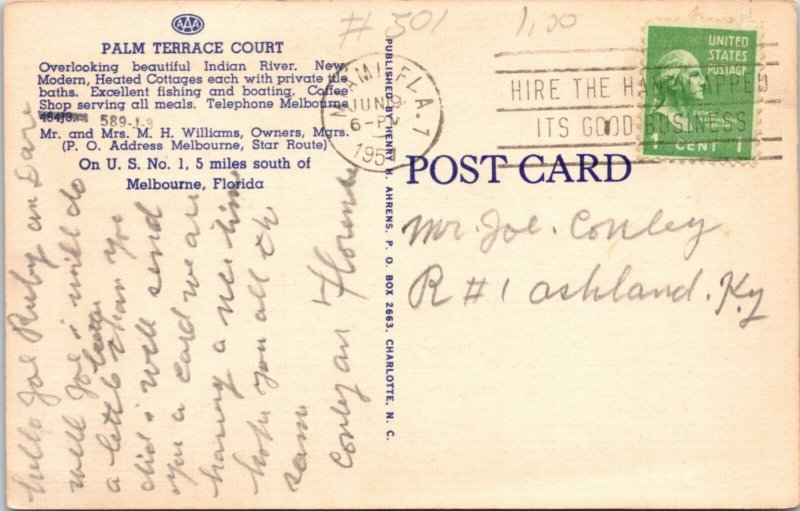 # 501
1,00
AAA
PALM TERRACE COURT
Overlooking beautiful Indian River. New,
Modern, Heated Cottages each with private tile
baths. Excellent fishing and boating. Coffee
Shop serving all meals. Telephone Melbourne
589-J-3
Mr. and Mrs. M. H. Williams, Owners, Mgrs.
(P. O. Address Melbourne, Star Route)
On U. S. No. 1, 5 miles south of
Melbourne, Florida
hello Joe Ruby an Dare
well Joe i will do
a little better than you
did i will send
you a card we are
having a nice time
hope you all the
same
Conley an Florence
PUBLISHED BY HENRY H. AHRENS, P. O. BOX 2663, CHARLOTTE, N. C.
MIAMI, FLA. 1
JUN 9
6-PM
195
HIRE THE HANDICAPPED
ITS GOOD BUSINESS
UNITED
STATES
POSTAGE
1 CENT 1
POST CARD
Mr. Joe. Conley
R # 1 ashland. Ky